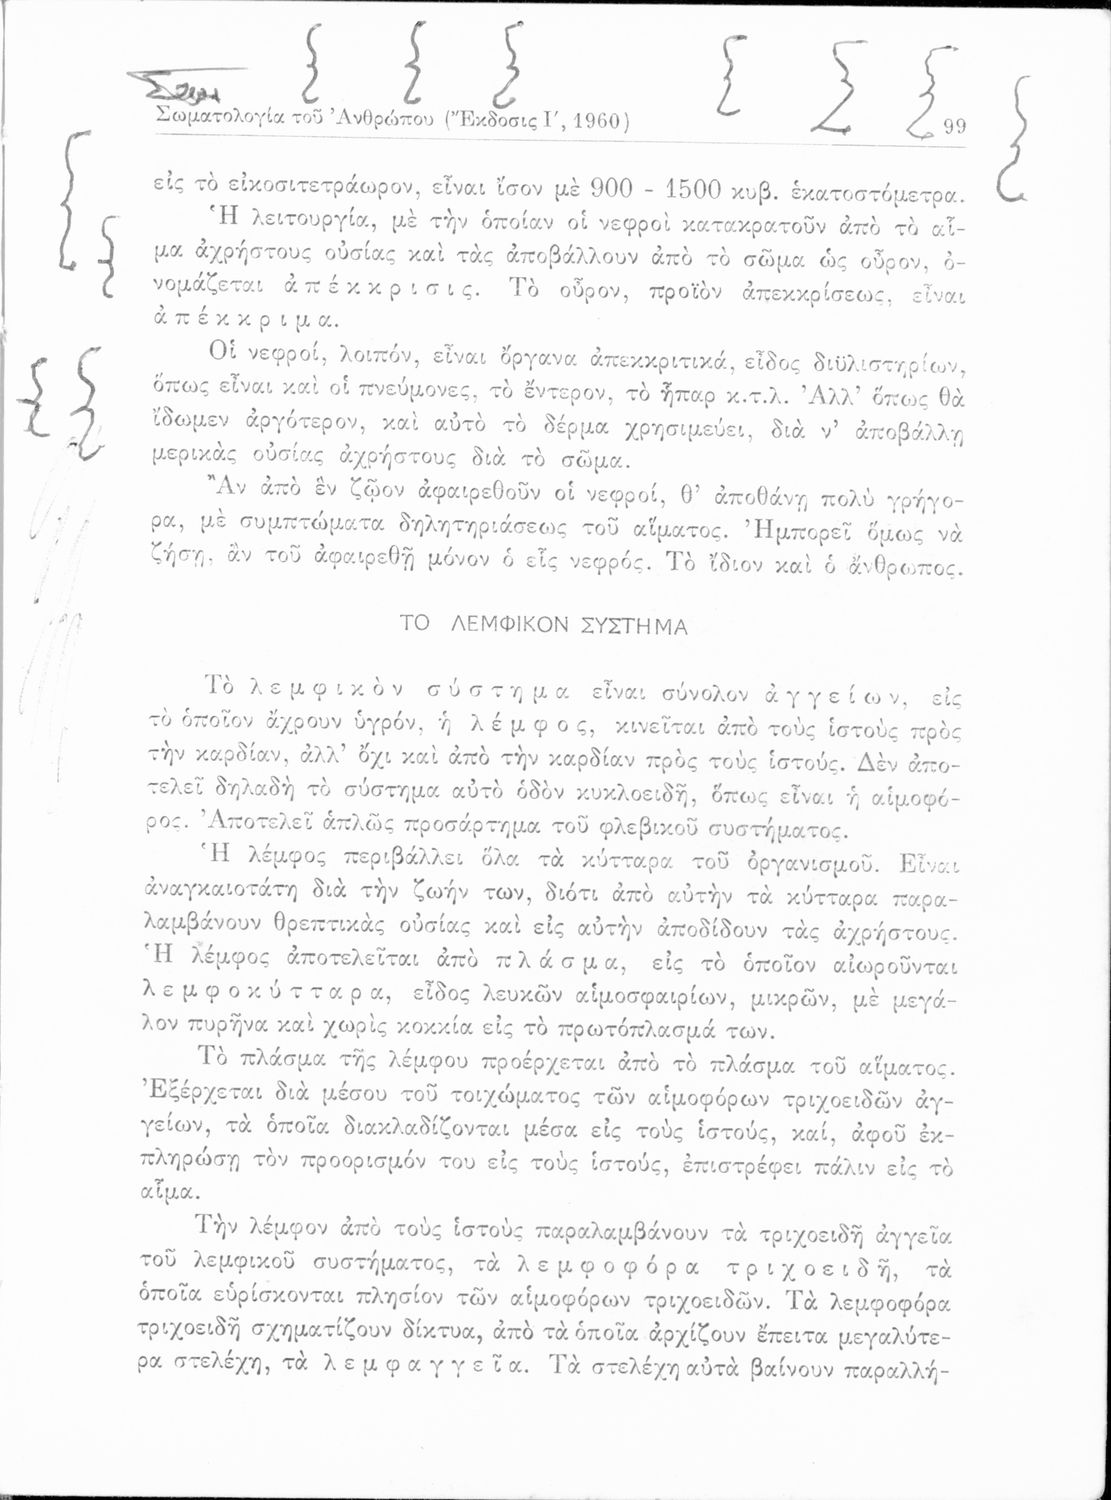 Σωματολογία τοῦ Ἀνθρώπου (Ἔκδοσις Ι΄, 1960) 99
εἰς τὸ εἰκοσιτετράωρον, εἶναι ἴσον μὲ 900 - 1500 κυβ. ἑκατοστόμετρα.
Ἡ λειτουργία, μὲ τὴν ὁποίαν οἱ νεφροὶ κατακρατοῦν ἀπὸ τὸ αἷ-
μα ἀχρήστους οὐσίας καὶ τὰς ἀποβάλλουν ἀπὸ τὸ σῶμα ὡς οὖρον, ὀ-
νομάζεται ἀπέκκρισις. Τὸ οὖρον, προϊὸν ἀπεκκρίσεως, εἶναι
ἀπέκκριμα.
Οἱ νεφροί, λοιπόν, εἶναι ὄργανα ἀπεκκριτικά, εἶδος διϋλιστηρίων,
ὅπως εἶναι καὶ οἱ πνεύμονες, τὸ ἔντερον, τὸ ἧπαρ κ.τ.λ. Ἀλλ’ ὅπως θὰ
ἴδωμεν ἀργότερον, καὶ αὐτὸ τὸ δέρμα χρησιμεύει, διὰ ν’ ἀποβάλλῃ
μερικὰς οὐσίας ἀχρήστους διὰ τὸ σῶμα.
Ἂν ἀπὸ ἓν ζῷον ἀφαιρεθοῦν οἱ νεφροί, θ’ ἀποθάνῃ πολὺ γρήγο-
ρα, μὲ συμπτώματα δηλητηριάσεως τοῦ αἵματος. Ἠμπορεῖ ὅμως νὰ
ζήσῃ, ἂν τοῦ ἀφαιρεθῇ μόνον ὁ εἷς νεφρός. Τὸ ἴδιον καὶ ὁ ἄνθρωπος.
ΤΟ ΛΕΜΦΙΚΟΝ ΣΥΣΤΗΜΑ
Τὸ λεμφικὸν σύστημα εἶναι σύνολον ἀγγείων, εἰς
τὸ ὁποῖον ἄχρουν ὑγρόν, ἡ λέμφος, κινεῖται ἀπὸ τοὺς ἱστοὺς πρὸς
τὴν καρδίαν, ἀλλ’ ὄχι καὶ ἀπὸ τὴν καρδίαν πρὸς τοὺς ἱστούς. Δὲν ἀπο-
τελεῖ δηλαδὴ τὸ σύστημα αὐτὸ ὁδὸν κυκλοειδῆ, ὅπως εἶναι ἡ αἱμοφό-
ρος. Ἀποτελεῖ ἁπλῶς προσάρτημα τοῦ φλεβικοῦ συστήματος.
Ἡ λέμφος περιβάλλει ὅλα τὰ κύτταρα τοῦ ὀργανισμοῦ. Εἶναι
ἀναγκαιοτάτη διὰ τὴν ζωήν των, διότι ἀπὸ αὐτὴν τὰ κύτταρα παρα-
λαμβάνουν θρεπτικὰς οὐσίας καὶ εἰς αὐτὴν ἀποδίδουν τὰς ἀχρήστους.
Ἡ λέμφος ἀποτελεῖται ἀπὸ πλάσμα, εἰς τὸ ὁποῖον αἰωροῦνται
λεμφοκύτταρα, εἶδος λευκῶν αἱμοσφαιρίων, μικρῶν, μὲ μεγά-
λον πυρῆνα καὶ χωρὶς κοκκία εἰς τὸ πρωτόπλασμά των.
Τὸ πλάσμα τῆς λέμφου προέρχεται ἀπὸ τὸ πλάσμα τοῦ αἵματος.
Ἐξέρχεται διὰ μέσου τοῦ τοιχώματος τῶν αἱμοφόρων τριχοειδῶν ἀγ-
γείων, τὰ ὁποῖα διακλαδίζονται μέσα εἰς τοὺς ἱστούς, καί, ἀφοῦ ἐκ-
πληρώσῃ τὸν προορισμόν του εἰς τοὺς ἱστούς, ἐπιστρέφει πάλιν εἰς τὸ
αἷμα.
Τὴν λέμφον ἀπὸ τοὺς ἱστοὺς παραλαμβάνουν τὰ τριχοειδῆ ἀγγεῖα
τοῦ λεμφικοῦ συστήματος, τὰ λεμφοφόρα τριχοειδῆ, τὰ
ὁποῖα εὑρίσκονται πλησίον τῶν αἱμοφόρων τριχοειδῶν. Τὰ λεμφοφόρα
τριχοειδῆ σχηματίζουν δίκτυα, ἀπὸ τὰ ὁποῖα ἀρχίζουν ἔπειτα μεγαλύτε-
ρα στελέχη, τὰ λεμφαγγεῖα. Τὰ στελέχη αὐτὰ βαίνουν παραλλή-